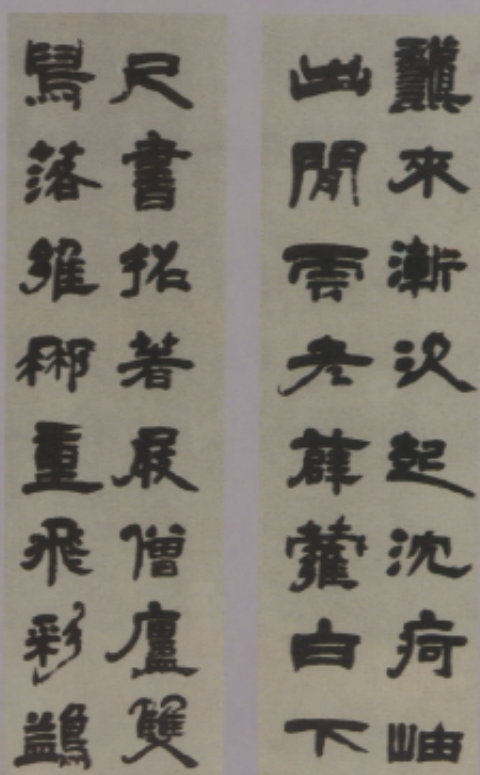 來漸次起沈疴岫
出閒雲老薜蘿白下
尺書招著屐僧廬雙
舄落維梛重飛彩鷁